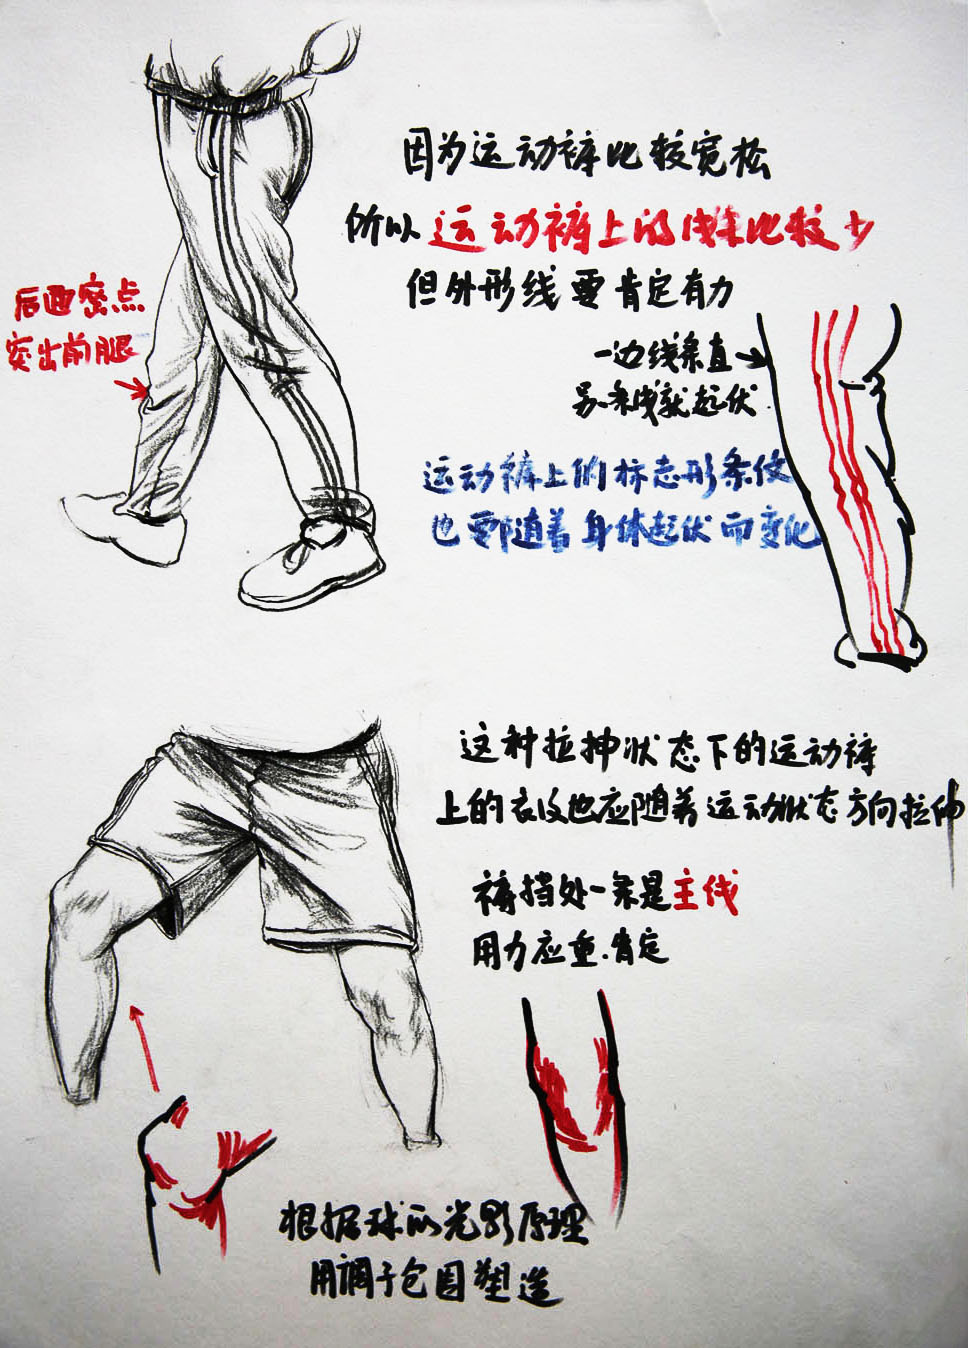 因为运动裤比较宽松
所以运动裤上的线条比较少
但外形线要肯定有力
后面密点
突出前腿
一边线条直
另一条线就起伏
运动裤上的标志形条纹
也要随着身体起伏而变化
这种拉抻状态下的运动裤
上的衣纹也应随着运动状态方向拉伸
裤挡处一条是主线
用力应重.肯定
根据球的光影原理
用调子包围塑造